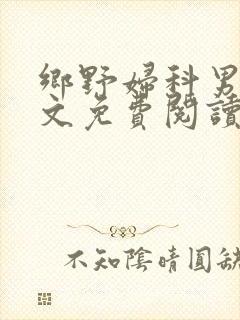 鄉野婦科男
文免費閱讀
不知陰晴圓缺